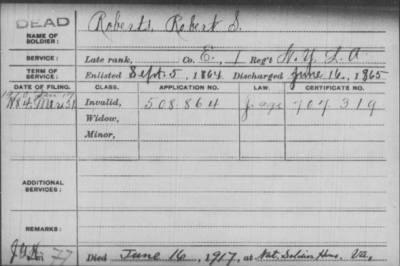 DEAD
NAME OF SOLDIER: Roberts, Robert S.
SERVICE: Late rank, Co. E, 1 Reg't N.Y. L. A.
TERM OF SERVICE: Enlisted Sept. 5, 1864 Discharged June 16, 1865
DATE OF FILING. CLASS. APPLICATION NO. LAW. CERTIFICATE NO.
1884. Mar 31 Invalid, 508.864 707 319
Widow,
Minor,
ADDITIONAL SERVICES:
REMARKS:
Died June 16, 1917, at Nat. Soldier Home. Va.